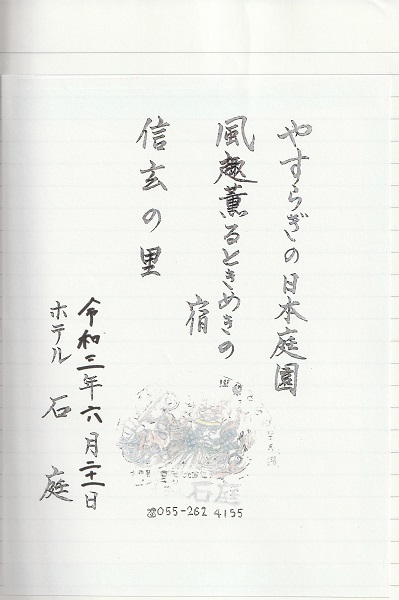 やすらぎの日本庭園
風趣薫るときめきの
宿
信玄の里
令和三年六月二十一日
ホテル 石庭
石庭
☎055-262 4155